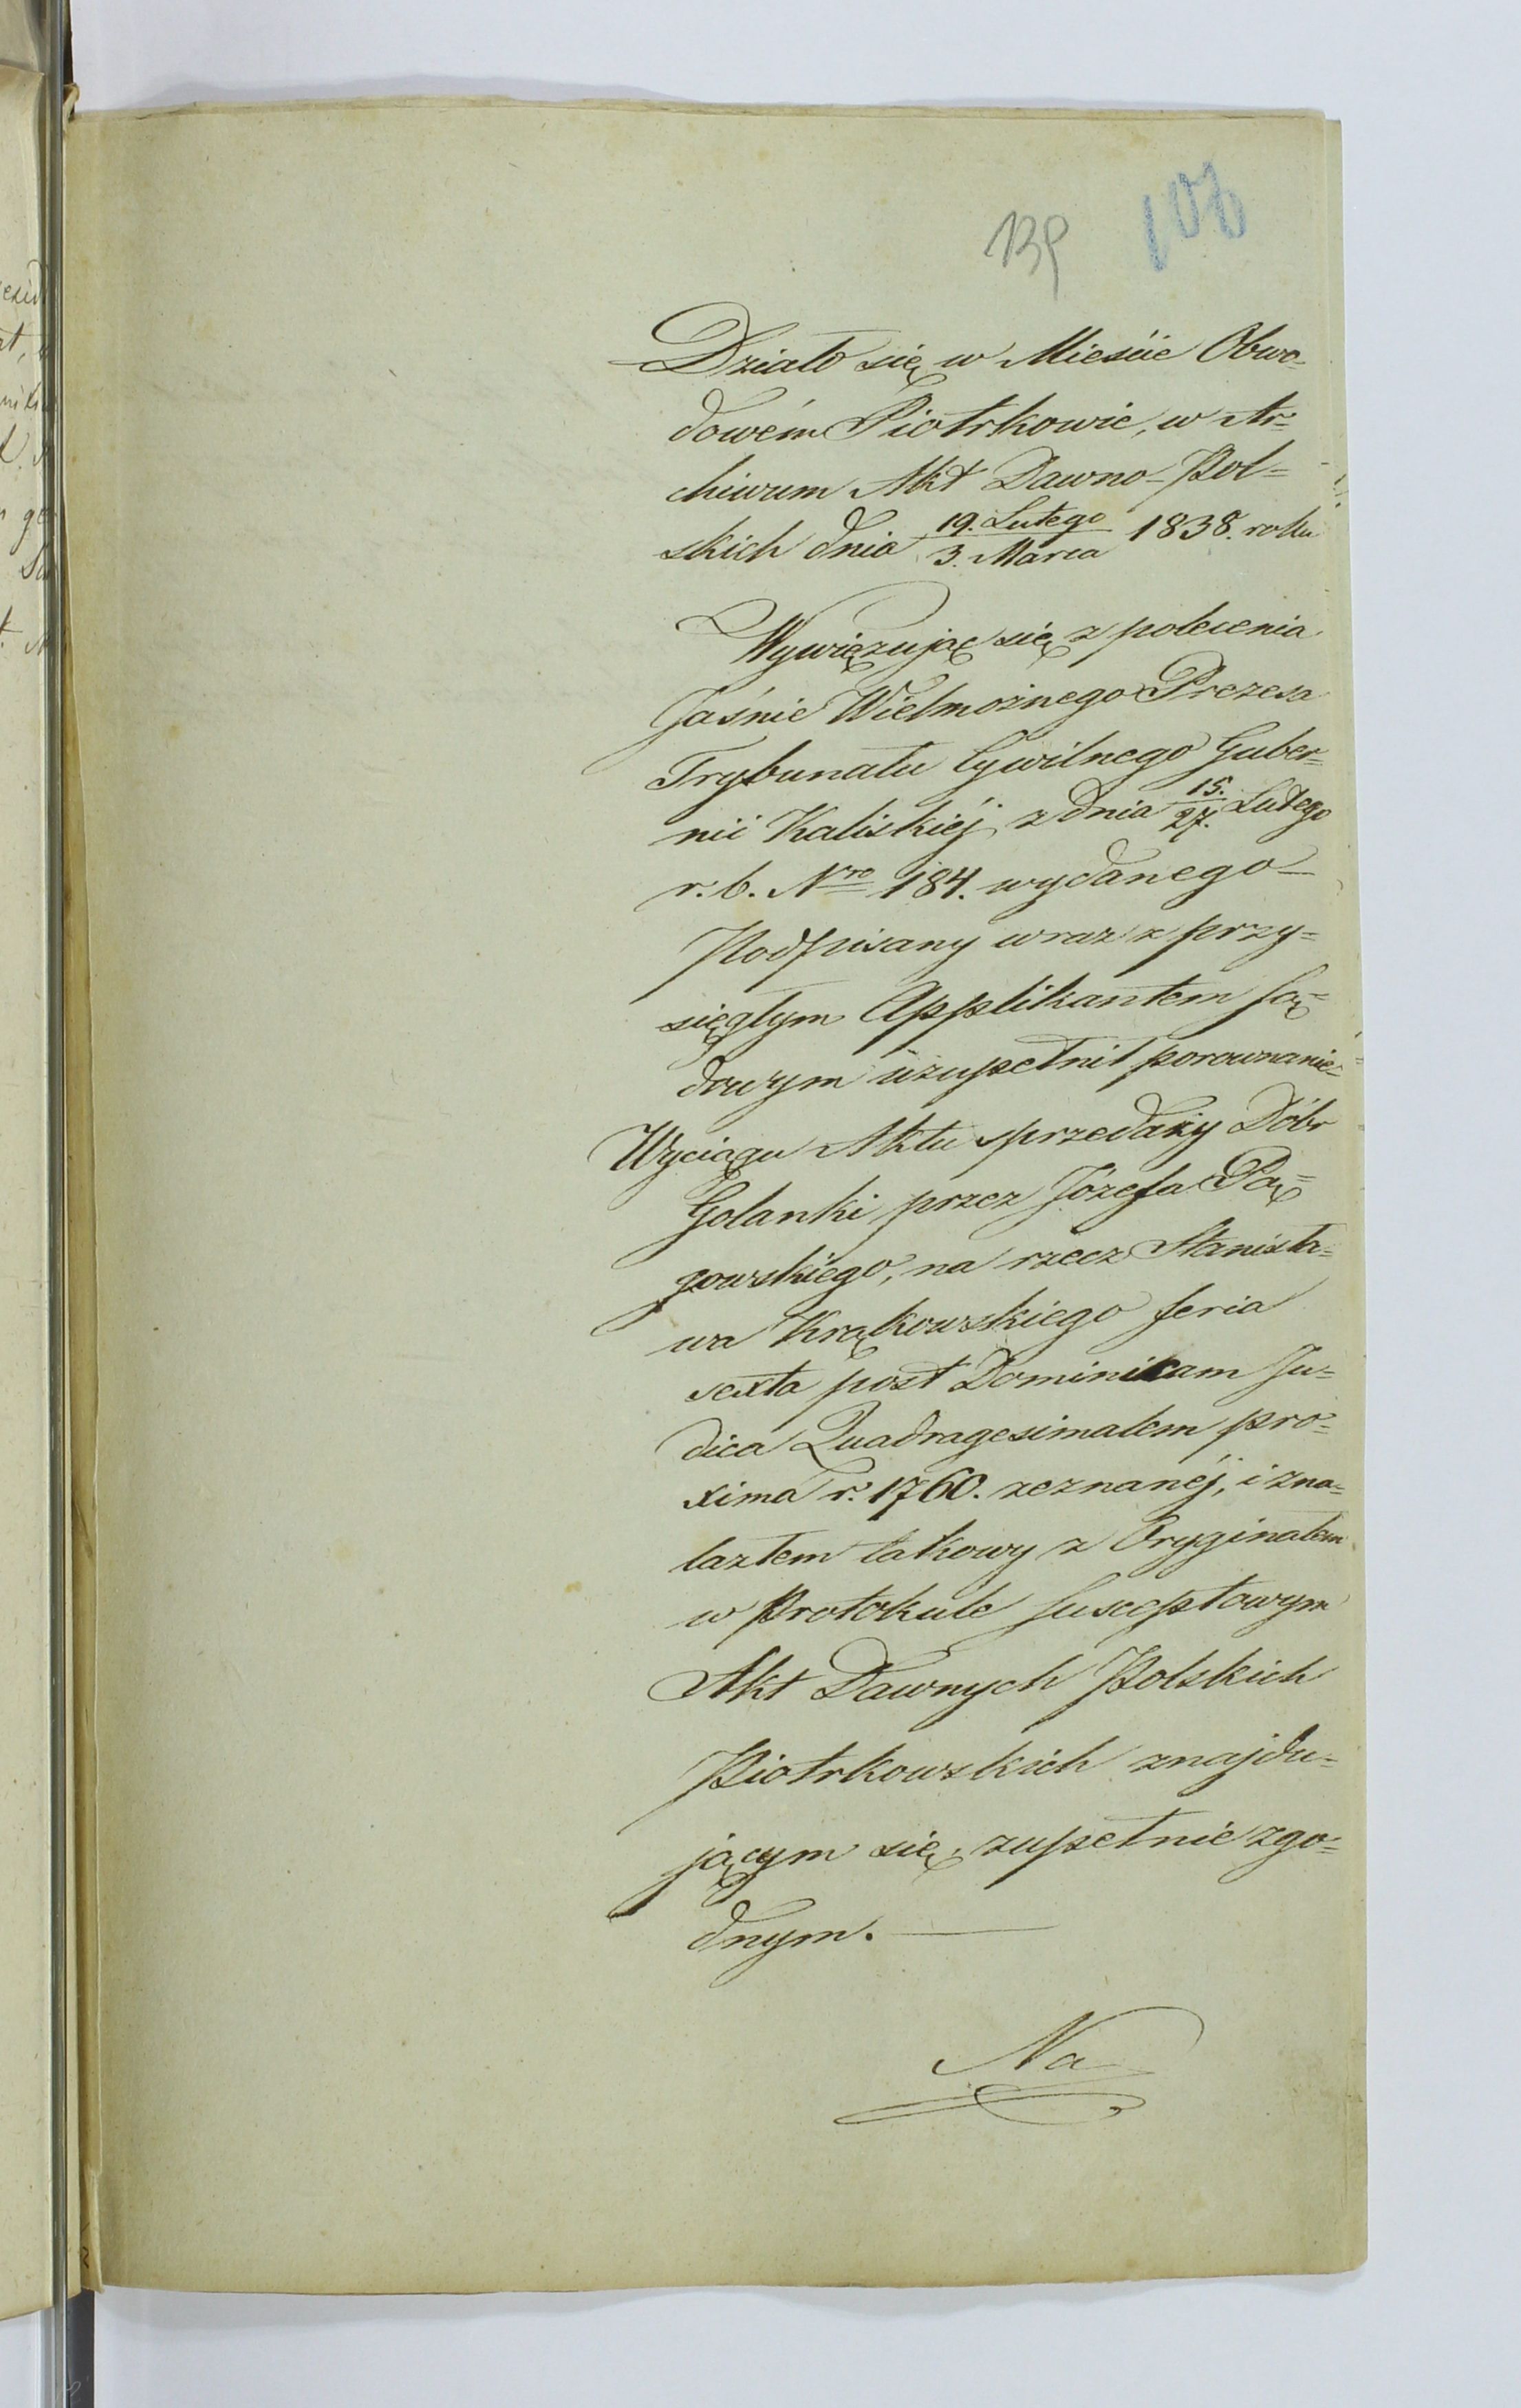 139 106
Działo się w Mieście Obwo-
dowém Piotrkowie, w Ar-
chiwum Akt Dawno-Pol-
skich dnia 19. Lutego / 3. Marca 1838. roku
Wywięzując się z polecenia
Jaśnie Wielmożnego Prezesa
Trybunału Cywilnego Guber-
nii Kaliskiéj, z dnia 15. / 27. Lutego
r. b. Nro 184. wydanego –
Podpisany wraz z przy-
sięgłym Applikantem Są-
dowym uzupełnił porownanie
Wyciągu Aktu sprzedaży Dóbr
Golanki przez Józefa Pą-
gowskiego, na rzecz Stanisła-
wa Krąkowskiego feria
sexta post Dominikam Ju-
dica Quadragesimalem pro-
xima r. 1760. zeznanéj, i zna-
lazłem takowy z Oryginałem
w Protokule Susceptowym
Akt Dawnych Polskich
Piotrkowskich znajdu-
jącym się, zupełnie zgo-
dnym. —
Na